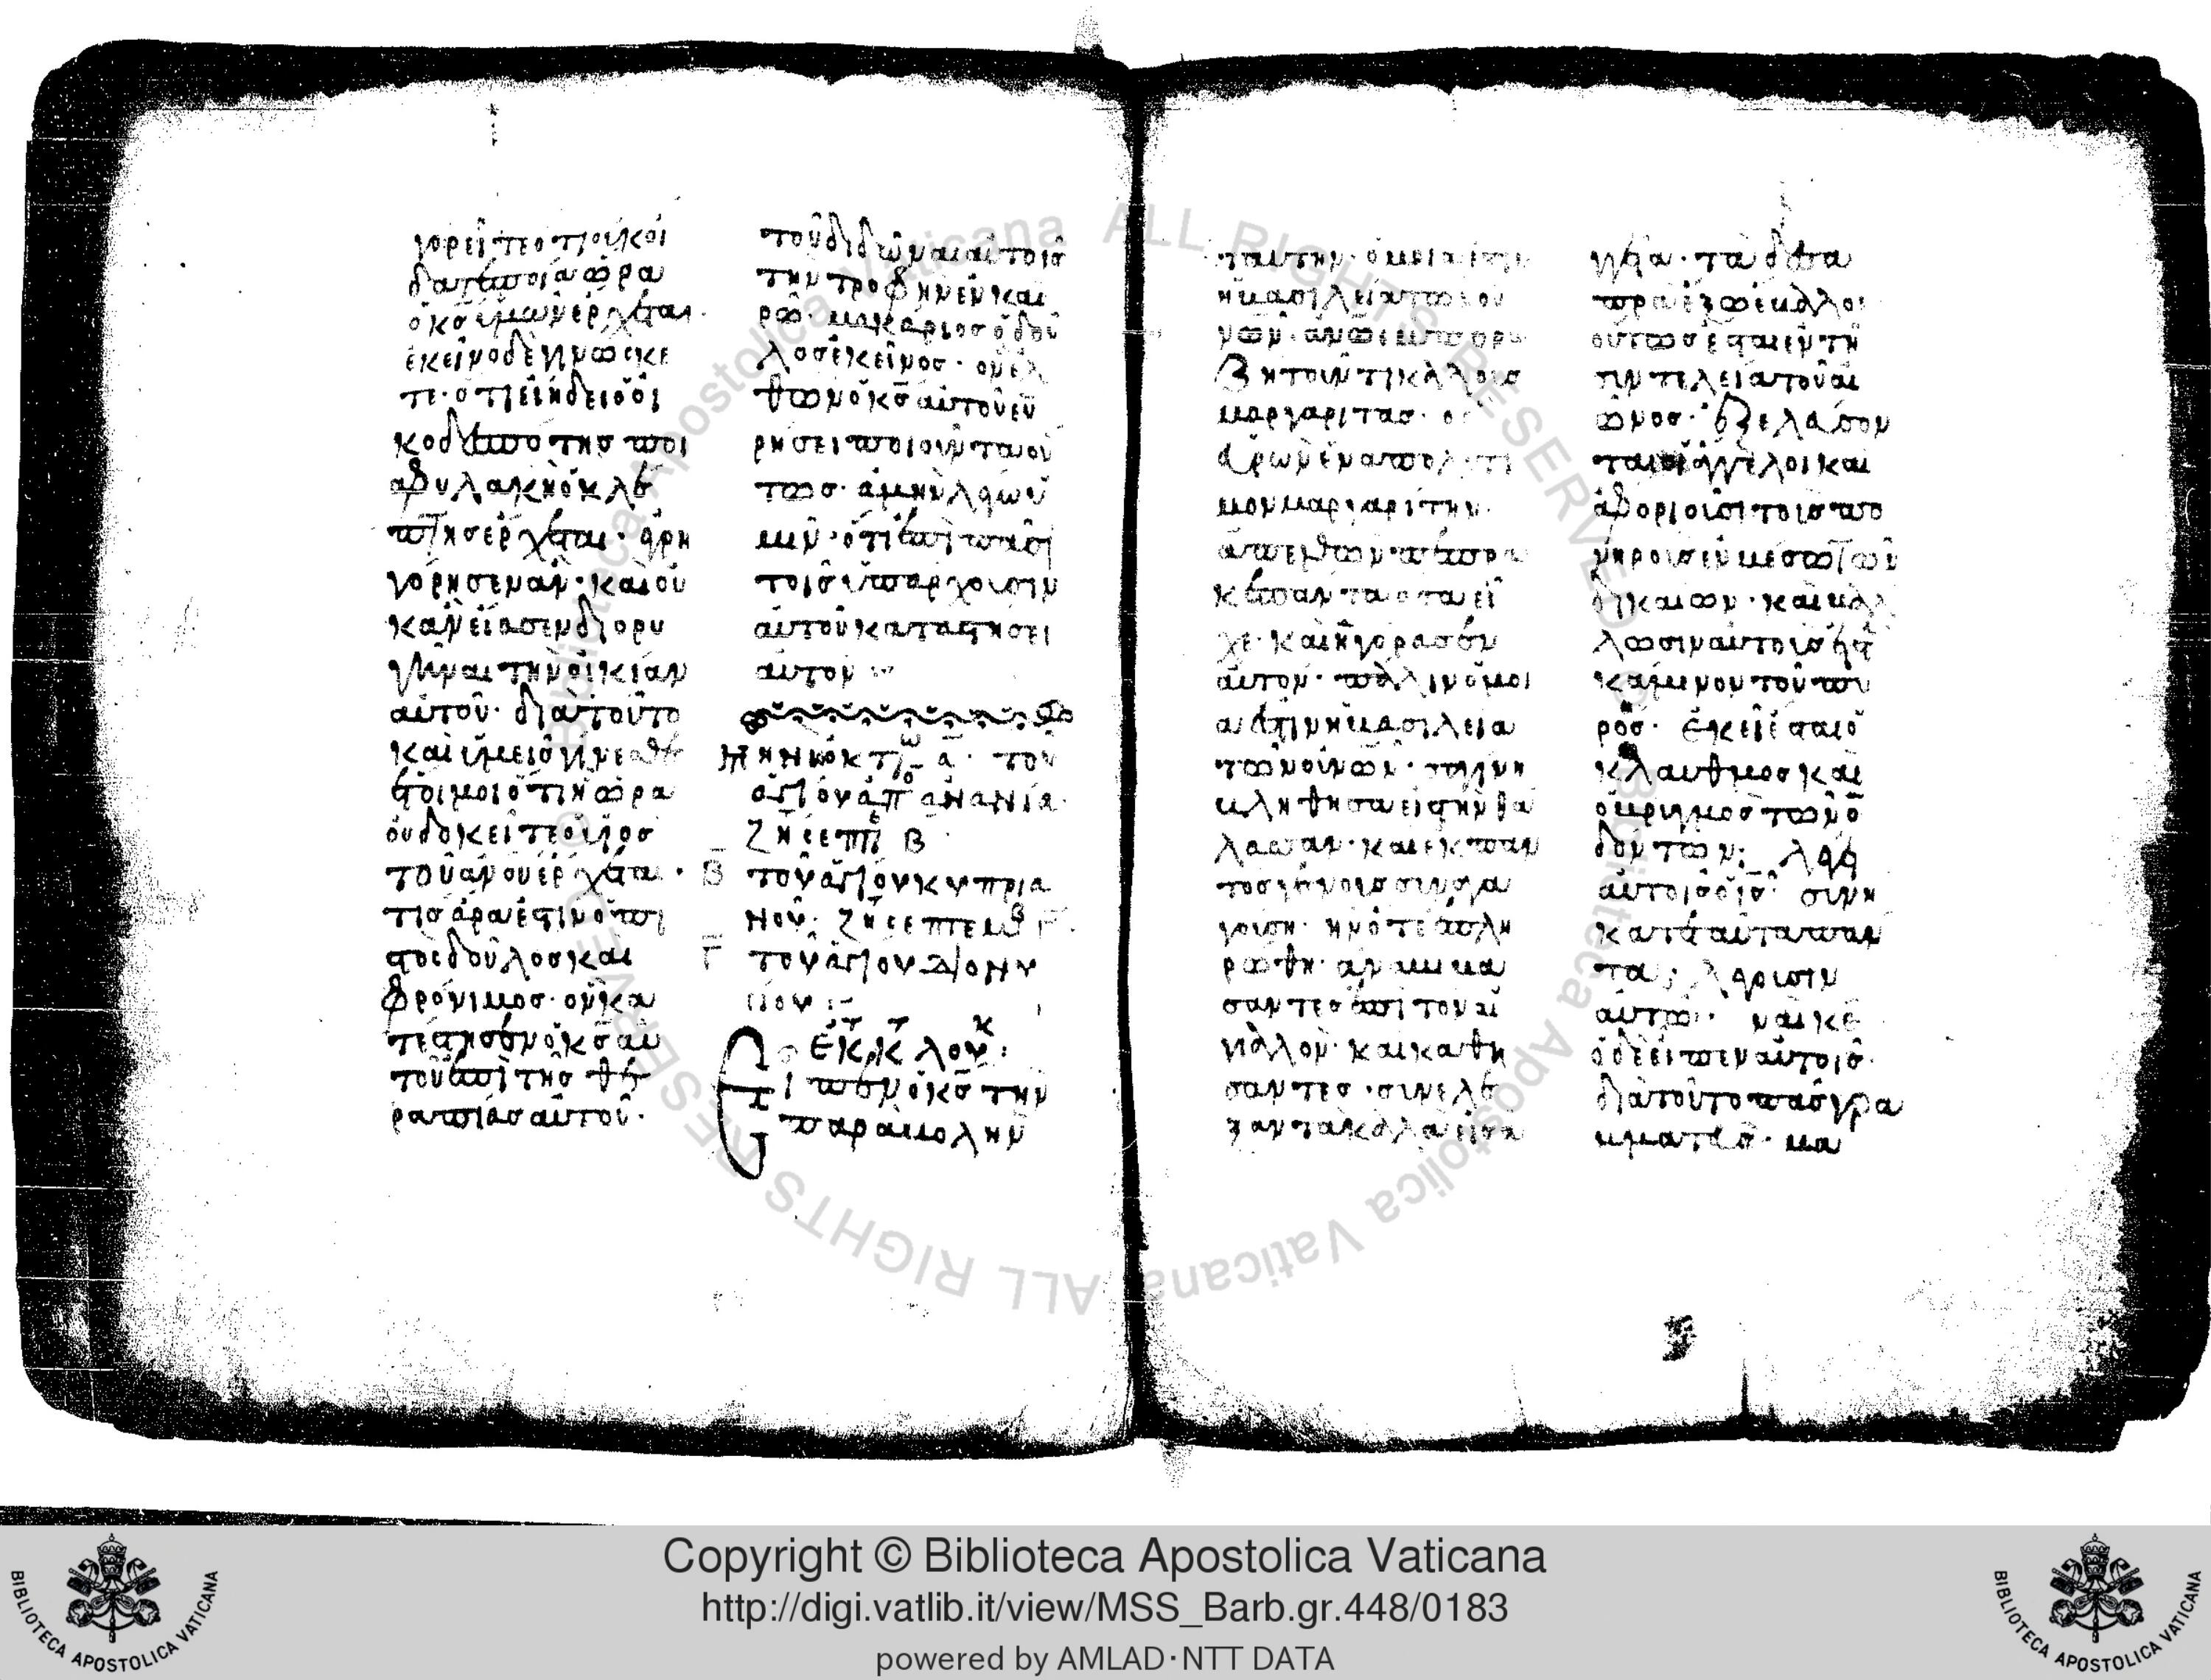 γορεῖτε ὅτι οὐκ οἴ
δατε ποία ὥρα
ὁ κ̅ς ὑμῶν ἔρχεται·
ἐκεῖνο δὲ γινώσκε
τε· ὅτι εἰ ἤδει ὁ οἰ
κοδεσπότης ποί
α φυλακῆ ὁ κλέ
πτης ἔρχεται· ἐγρη
γόρησεν ἂν· καὶ οὐ
κ ἂν εἴασεν διορυ
γῆναι τὴν οἰκίαν
αὐτοῦ· διὰ τοῦτο
καὶ ὑμεῖς γίνεσθε
ἕτοιμοι ὅτι ἡ ὥρα
οὐ δοκεῖτε ὁ υἱὸς
τοῦ ἀν̅ου ἔρχεται·
τίς ἄρα ἐστὶν ὁ πι
στὸς δοῦλος καὶ
φρόνιμος· ὃν κα
τέστησεν ὁ κ̅ς αὐ
τοῦ ἐπὶ τῆς θε
ραπείας αὐτοῦ·
τοῦ διδῶναι αὐτοῖς
τὴν τροφὴν ἐν και
ρῶ· μακάριος ὁ δοῦ
λος ἐκεῖνος· ὃν ἐλ
θὼν ὁ κ̅ς αὐτοῦ εὑ
ρήσει ποιοῦντα οὕ
τως· ἀμὴν λέγω ὑ
μῖν· ὅτι ἐπὶ πᾶσι
τοῖς ὑπάρχουσιν
αὐτοῦ καταστήσει
αὐτόν
μηνὶ ὀκτω α̅· τοῦ
ἁγίου ἀπο ἀνανία·
ζη σεπτε Β
Β̅ τοῦ ἁγίου κυπρια
νοῦ· ζη σεπτεμβ
Γ̅ τοῦ ἁγίου διονυ
σίου :
ἐκ τ κ λουκ :
Εἶπεν ὁ κ̅ς τὴν
παραβολὴν
ταύτην· ὁμοία ἐστιν
ἡ βασιλεία τῶν οὐ
νῶν· ἀν̅ω ἐμπόρω
ζητοῦντι καλλοὺς
μαργαρίτας· ὃς
εὑρὼν ἕνα πολυτι
μον μαργαρίτην·
ἀπελθὼν πέπρα
κε πάντα ὅσα εἶ
χε· καὶ ἠγόρασεν
αὐτόν· πάλιν ὁμοί
α ἐστὶν ἡ βασιλεία
τῶν οὐνῶν· σαγήνη
βληθήση εἰς τὴν θά
λασσαν· καὶ ἐκ παν
τὸς γένους συναγα
γούση· ἣν ὅτε ἐπλη
ρώθη· ἀναβιβά
σαντες ἐπὶ τὸν αἰ
γιαλὸν· καὶ καθή
σαντες· συνέλε
ξαν τὰ καλὰ εἰς ἀ
γγεῖα· τὰ δὲ σα
πρὰ ἔξω ἔβαλον·
οὕτως ἔσται ἐν τῆ
συντελεία τοῦ αἰ
ῶνος· ἐξελεύσον
ται οἱ ἄγγελοι καὶ
ἀφοριοῦσι τοὺς πο
νηροὺς ἐν μέσω τῶν
δικαίων· καὶ βαλ
λῶσιν αὐτοὺς εἰς τ
κάμινον τοῦ πυ
ρός· ἐκεῖ ἔσται ὁ
κλαυθμὸς καὶ
ὁ βρυγμὸς τῶν ὀ
δόντων: λέγει
αὐτοῖς ὁ ι̅ς· συνή
κατε ταῦτα πάν
τα; λέγουσιν
αὐτῶ· ναὶ κ̅ε
ὁ δὲ εἶπεν αὐτοῖς·
διὰ τοῦτο πᾶς γρα
μματεὺς· μα
Copyright © Biblioteca Apostolica Vaticana
http://digi.vatlib.it/view/MSS_Barb.gr.448/0183
powered by AMLAD·NTT DATA
BIBLIOTECA APOSTOLICA VATICANA
BIBLIOTECA APOSTOLICA VATICANA